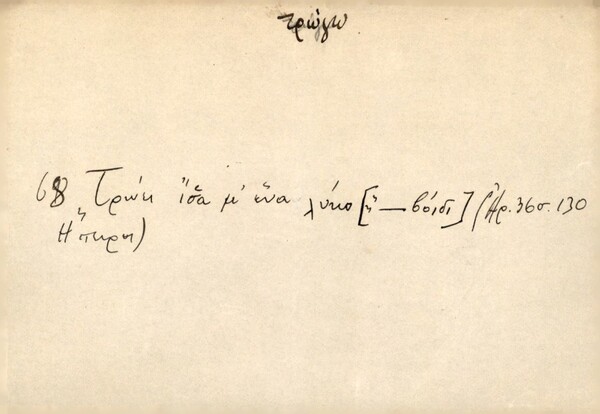 τρώγω
68 Τρώει ἴσα μ' ἕνα λύκο [ἤ — βόιδι] (Ἀρ. 36 σ. 130
Ἤπειρ)